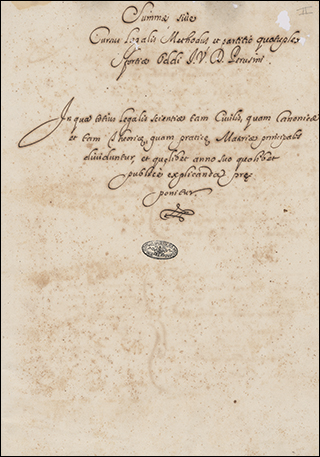 Summa siue
Cursus Legalis Methodus et partitio quatuplex
Sfortiæ Oddi I. V. D. Perusini.
In qua totius Legalis scientiæ tam Ciuilis, quam Canonicæ
et tam Theoricæ, quam praticæ Materiæ principales
diuiduntur, et quælibet anno suo quolibet
publicè explicanda præ
ponitur.